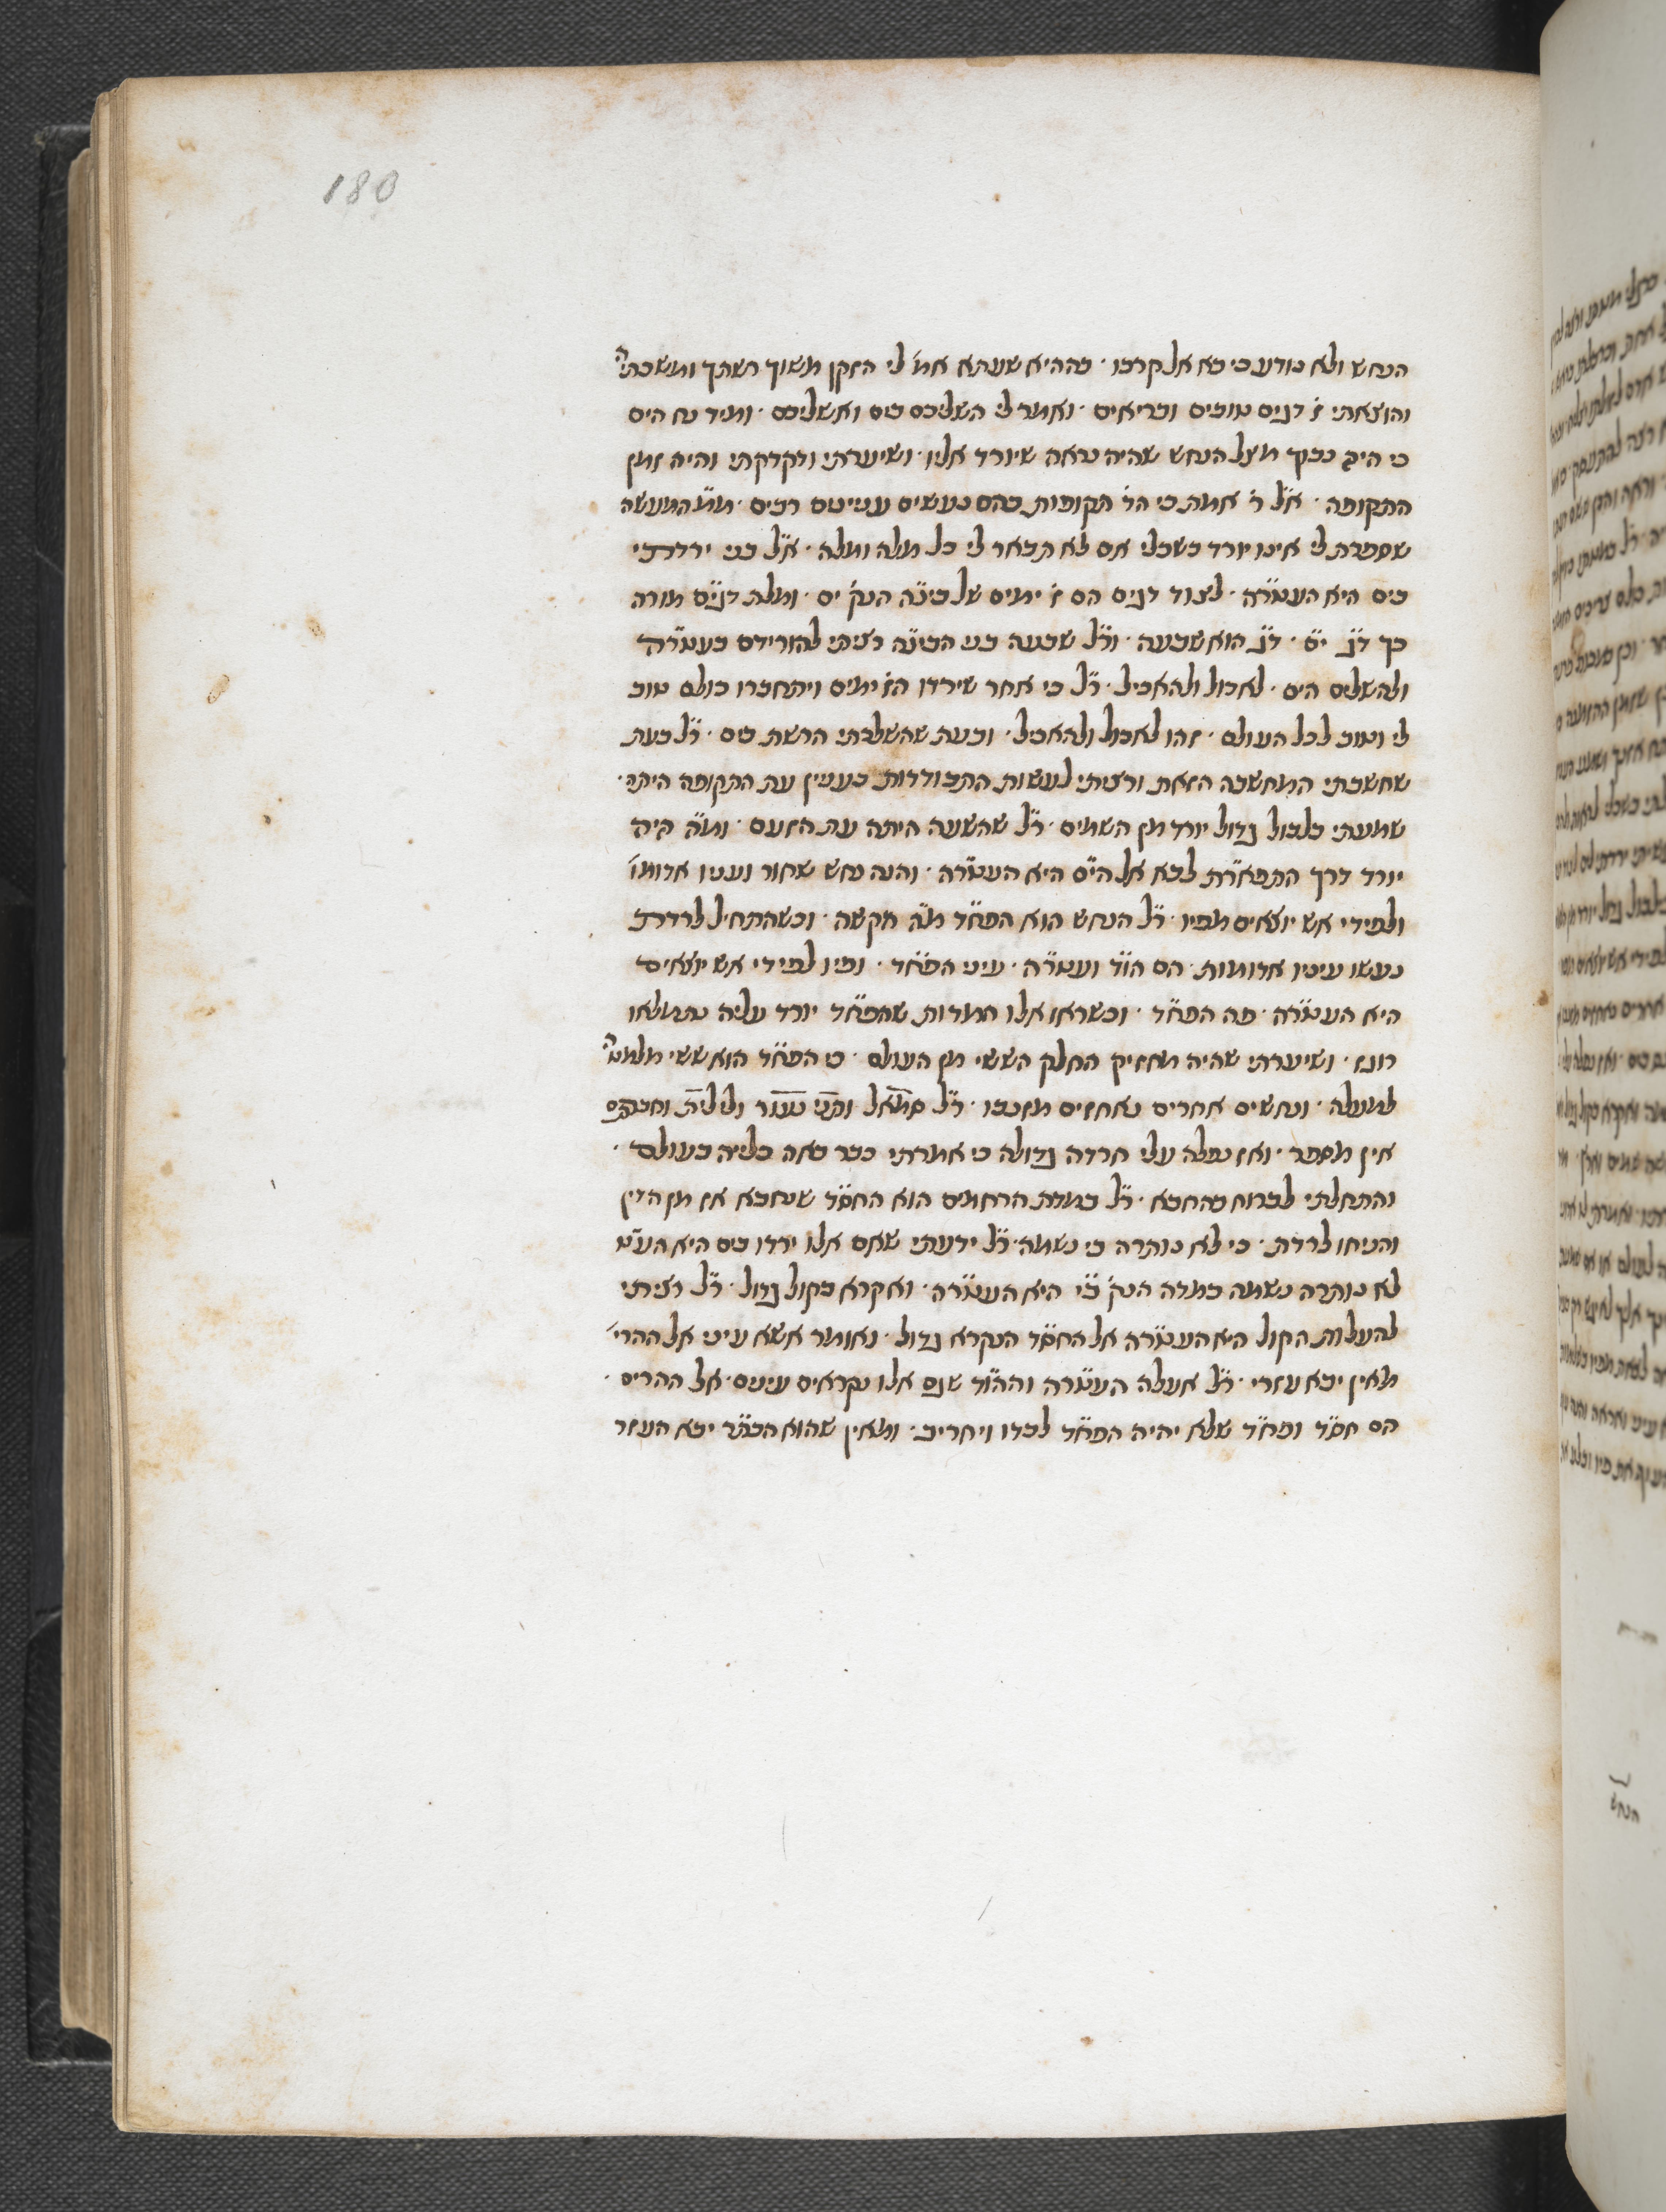 180
הנחש ולא נודע כי בא אל קרבו · בההיא שעתא אמ' לי הזקן משוך רשתך ומשכתי'
והוצאתי ז' דגים טובים ובריאים · ואמר לי השליכם בים ואשליכם · ומיד נח הים
כי היה נבוך מצל הנחש שהיה נראה שיורד אליו · ושיערתי ודקדקתי והיה זמן
התקופה · א"ל ר' אמת כי הד' תקופות בהם נעשים עניינים רבים · מ"מ המעשה
שספרת לי אינו יורד בשכלי אם לא תבאר לי כל מלה ומלה · א"ל בני ירדתי
בים היא העטרה · לצוד דגים הם ז' ימים של בינה הנק' ים · ומלת דגים מורה
כך ד"ג י"ם · ד"ג הוא שבעה · ור"ל שבעה בני הבינה רציתי להורידם בעטרה
ולהשלים הים · לאכול ולהאכיל · ר"ל כי אחר שירדו הז' ימים ויתחברו כולם טוב
לי וטוב לכל העולם · זהו לאכול ולהאכיל · ובעת שהשלכתי הרשת בים · ר"ל בעת
שחשבתי המחשבה הזאת ורציתי לעשות התבודדות בענין עת התקופה היתה ·
שמעתי בלבול גדול יורד מן השמים · ר"ל שהשעה היתה עת הזעם · ומ"ה היה
יורד דרך התפארת לבא אל הים היא העטרה · והנה נחש שחור ועניו אדומו'
ולפידי אש יוצאים מפיו · ר"ל הנחש הוא הפחד מ"ה הקשה · וכשהתחיל לרדת
נעשו עיניו אדומות · הם הוד ועטרה · עיני הפחד · ופיו לפידי אש יוצאים
היא העטרה · פה הפחד · וכשראו אלו המדות שהפחד יורד עליה נתמלאו
רוגז · ושיערתי שהיה מחזיק החלק הששי מן העולם · כי הפחד הוא ששי מלמט'
למעלה · ונחשים אחרים נאחזים מזנבו · ר"ל סמאל ובני נעור ולילית
אין מספר · ואז נפלה עלי חרדה גדולה כי אמרתי כבר באה כליה בעולם ·
והתחלתי לברוח בהחבא · ר"ל במדת הרחמים הוא החסד שנחבא אז מן הדין
והניחו לרדת · כי לא נותרה בי נשמה · ר"ל ידעתי שאם אלו ירדו בים היא העט'
לא נותרה נשמה במדה הנק' בי היא העטרה · ואקרא בקול גדול · ר"ל רציתי
להעלות הקול היא העטרה אל החסד הנקרא גדול · ואומר אשא עיני אל ההרי'
מאין יבא עזרי · ר"ל אעלה העטרה וההוד שגם אלו נקראים עינים · אל ההרים ·
הם חסד ופחד שלא יהיה הפחד לבדו ויחריב · ומאין שהוא הכתר יבא העזר